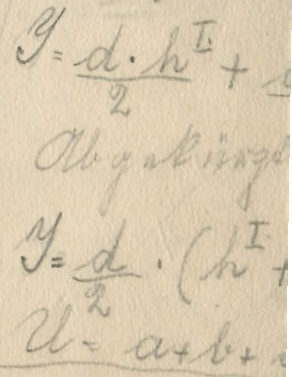 J = d · h^I / 2 +
Abgekürzt
J = d / 2 · (h^I +
U = a + b +